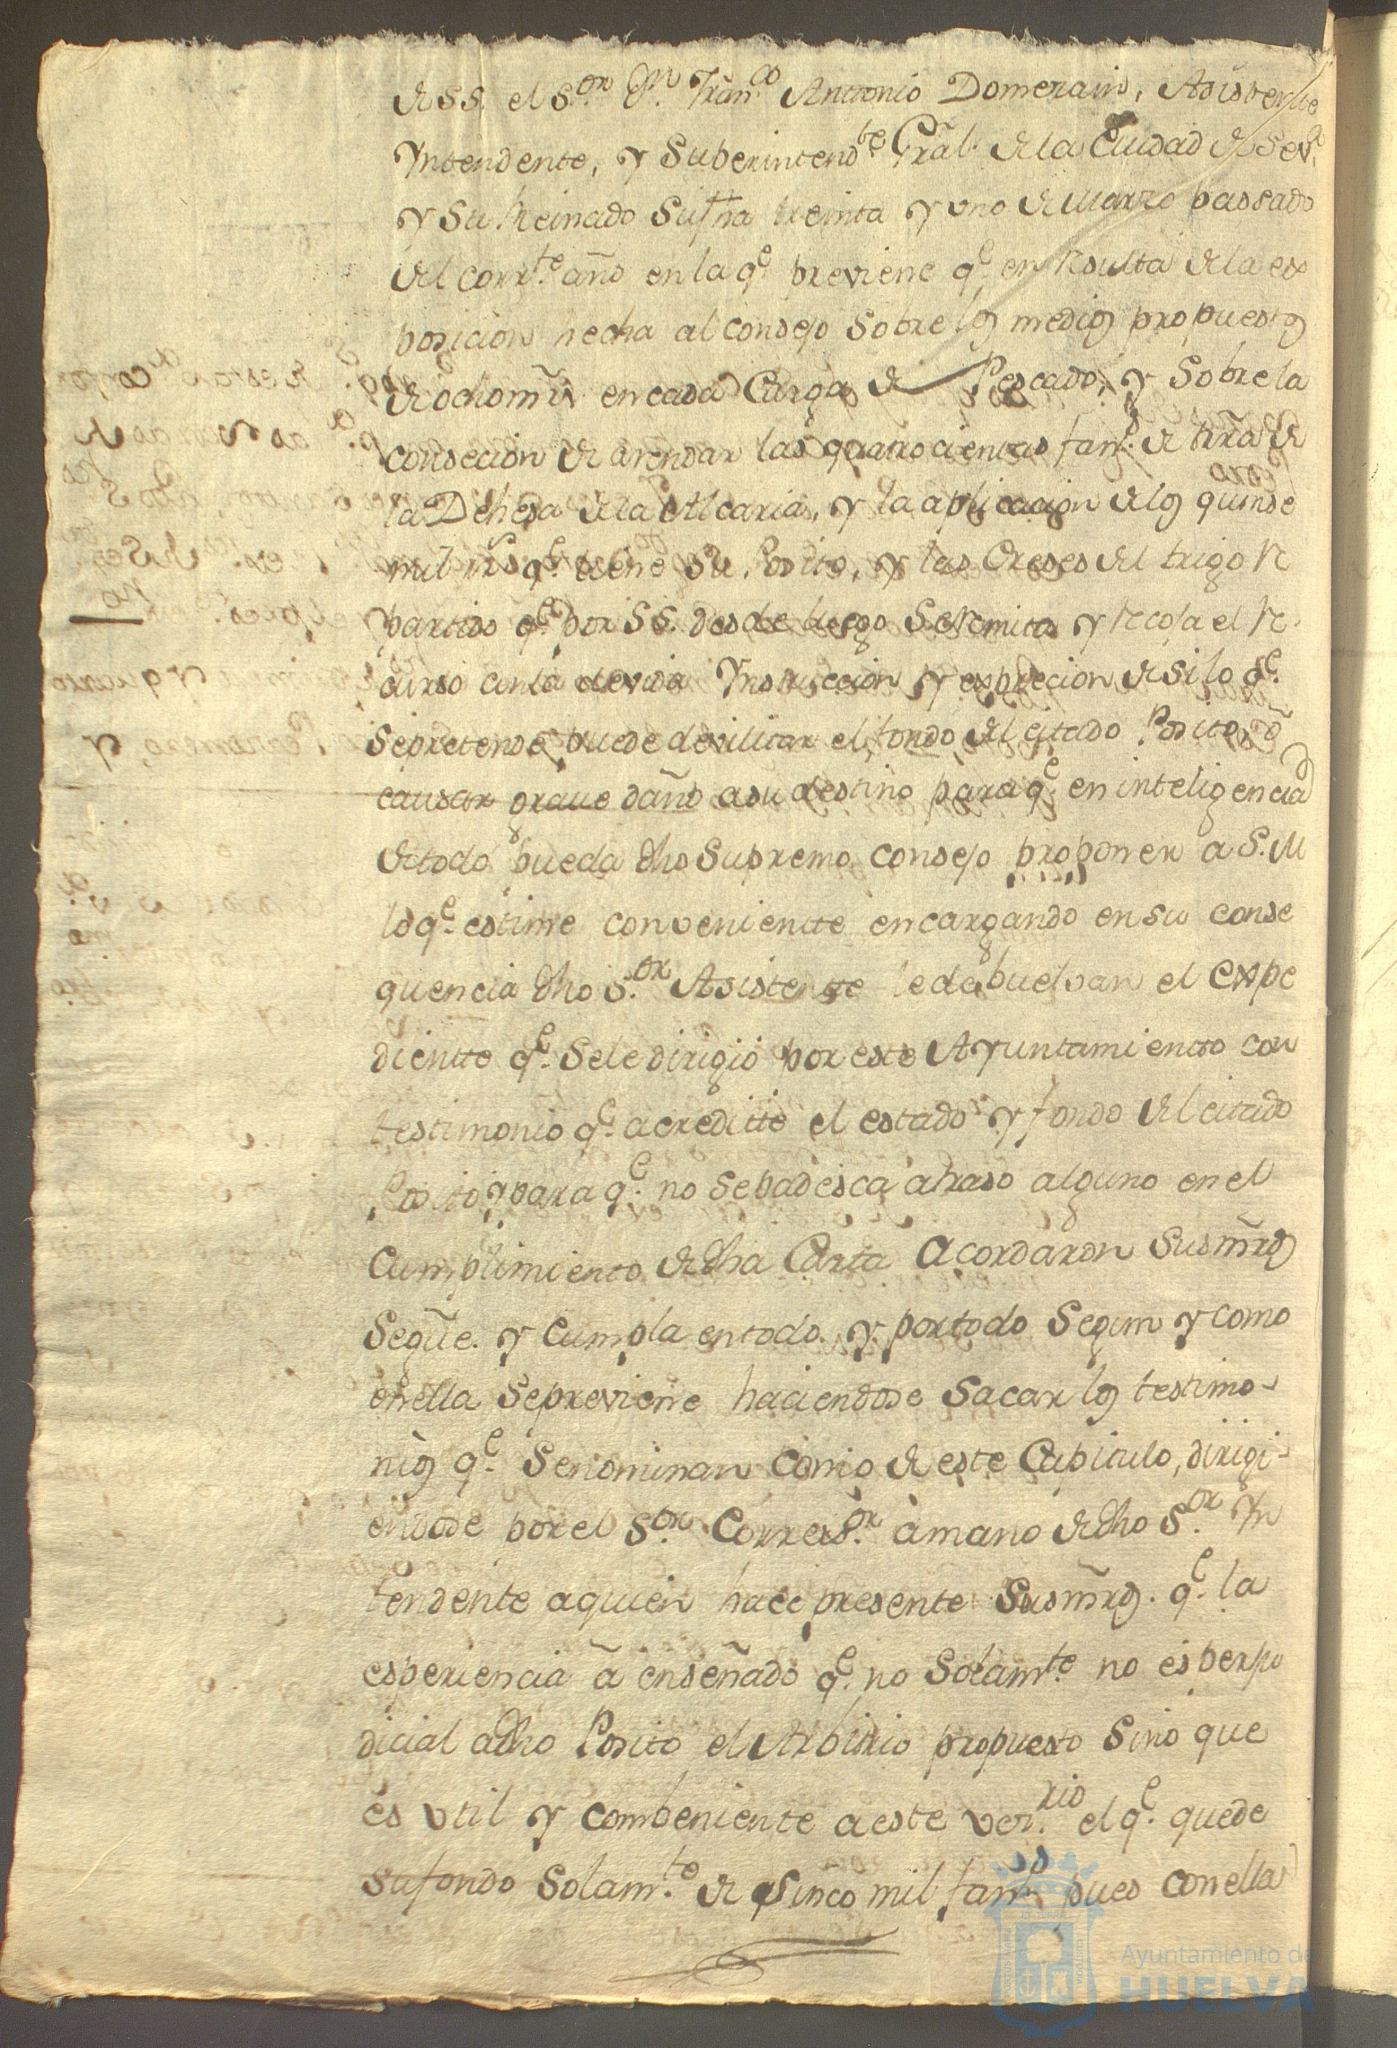 de S.S. el S.or D.n Fran.co Antonio Domezain, Asistente
Yntendente, y Superintend.te Gral. de la Ciudad de Sev.a
y su Reinado su fha treinta y uno de Marzo passado
del corr.te año en la q.e previene q.e en Resulta de la ex
posicion hecha al consejo sobre los medios propuestos
de ocho mrs en cada Carga de Pescado, y sobre la
consecion de arrendar las quatrocientas fan.s de trra de
la Dehesa de la Alcaria, y la aplicacion de los quinse
mil rrs q.e tiene su Posito, y las Creses del trigo Re
partido q.e por S.S. desde luego se Remita y Recoja el Re
curso con la devida Ynstruccion y exprecion de si lo q.e
se pretende puede devilitar el fondo del citado Posito, o
causar grave daño a su destino para q.e en inteligencia
de todo pueda dho Supremo consejo proponer a S.M
lo q.e estime conveniente encargando en su conse
quencia dho S.or Asistente le debuelvan el expe
diente q.e se le dirigio por este Ayuntamiento con
testimonio q.e acreditte el estado y fondo del citado
Posito, y para q.e no se padesca atraso alguno en el
Cumplimiento de dha Carta Acordaron sus mrds
se gûe. y cumpla en todo y por todo segun y como
en ella se previene haciendose sacar los testimo-
nios q.e se nominan como de este Capitulo, dirigi-
endose por el S.or Correx.or a mano de dho S.or Yn
tendente a quien hace presente sus mrds. q.e la
esperiencia ã enseñado q.e no solam.te no es perju
dicial a dho Posito el Arbitrio propuesto sino que
es util y combeniente a este vez.rio el q.e quede
su fondo solam.te de sinco mil fan.s pues con ellas
Ayuntamiento de
HUELVA